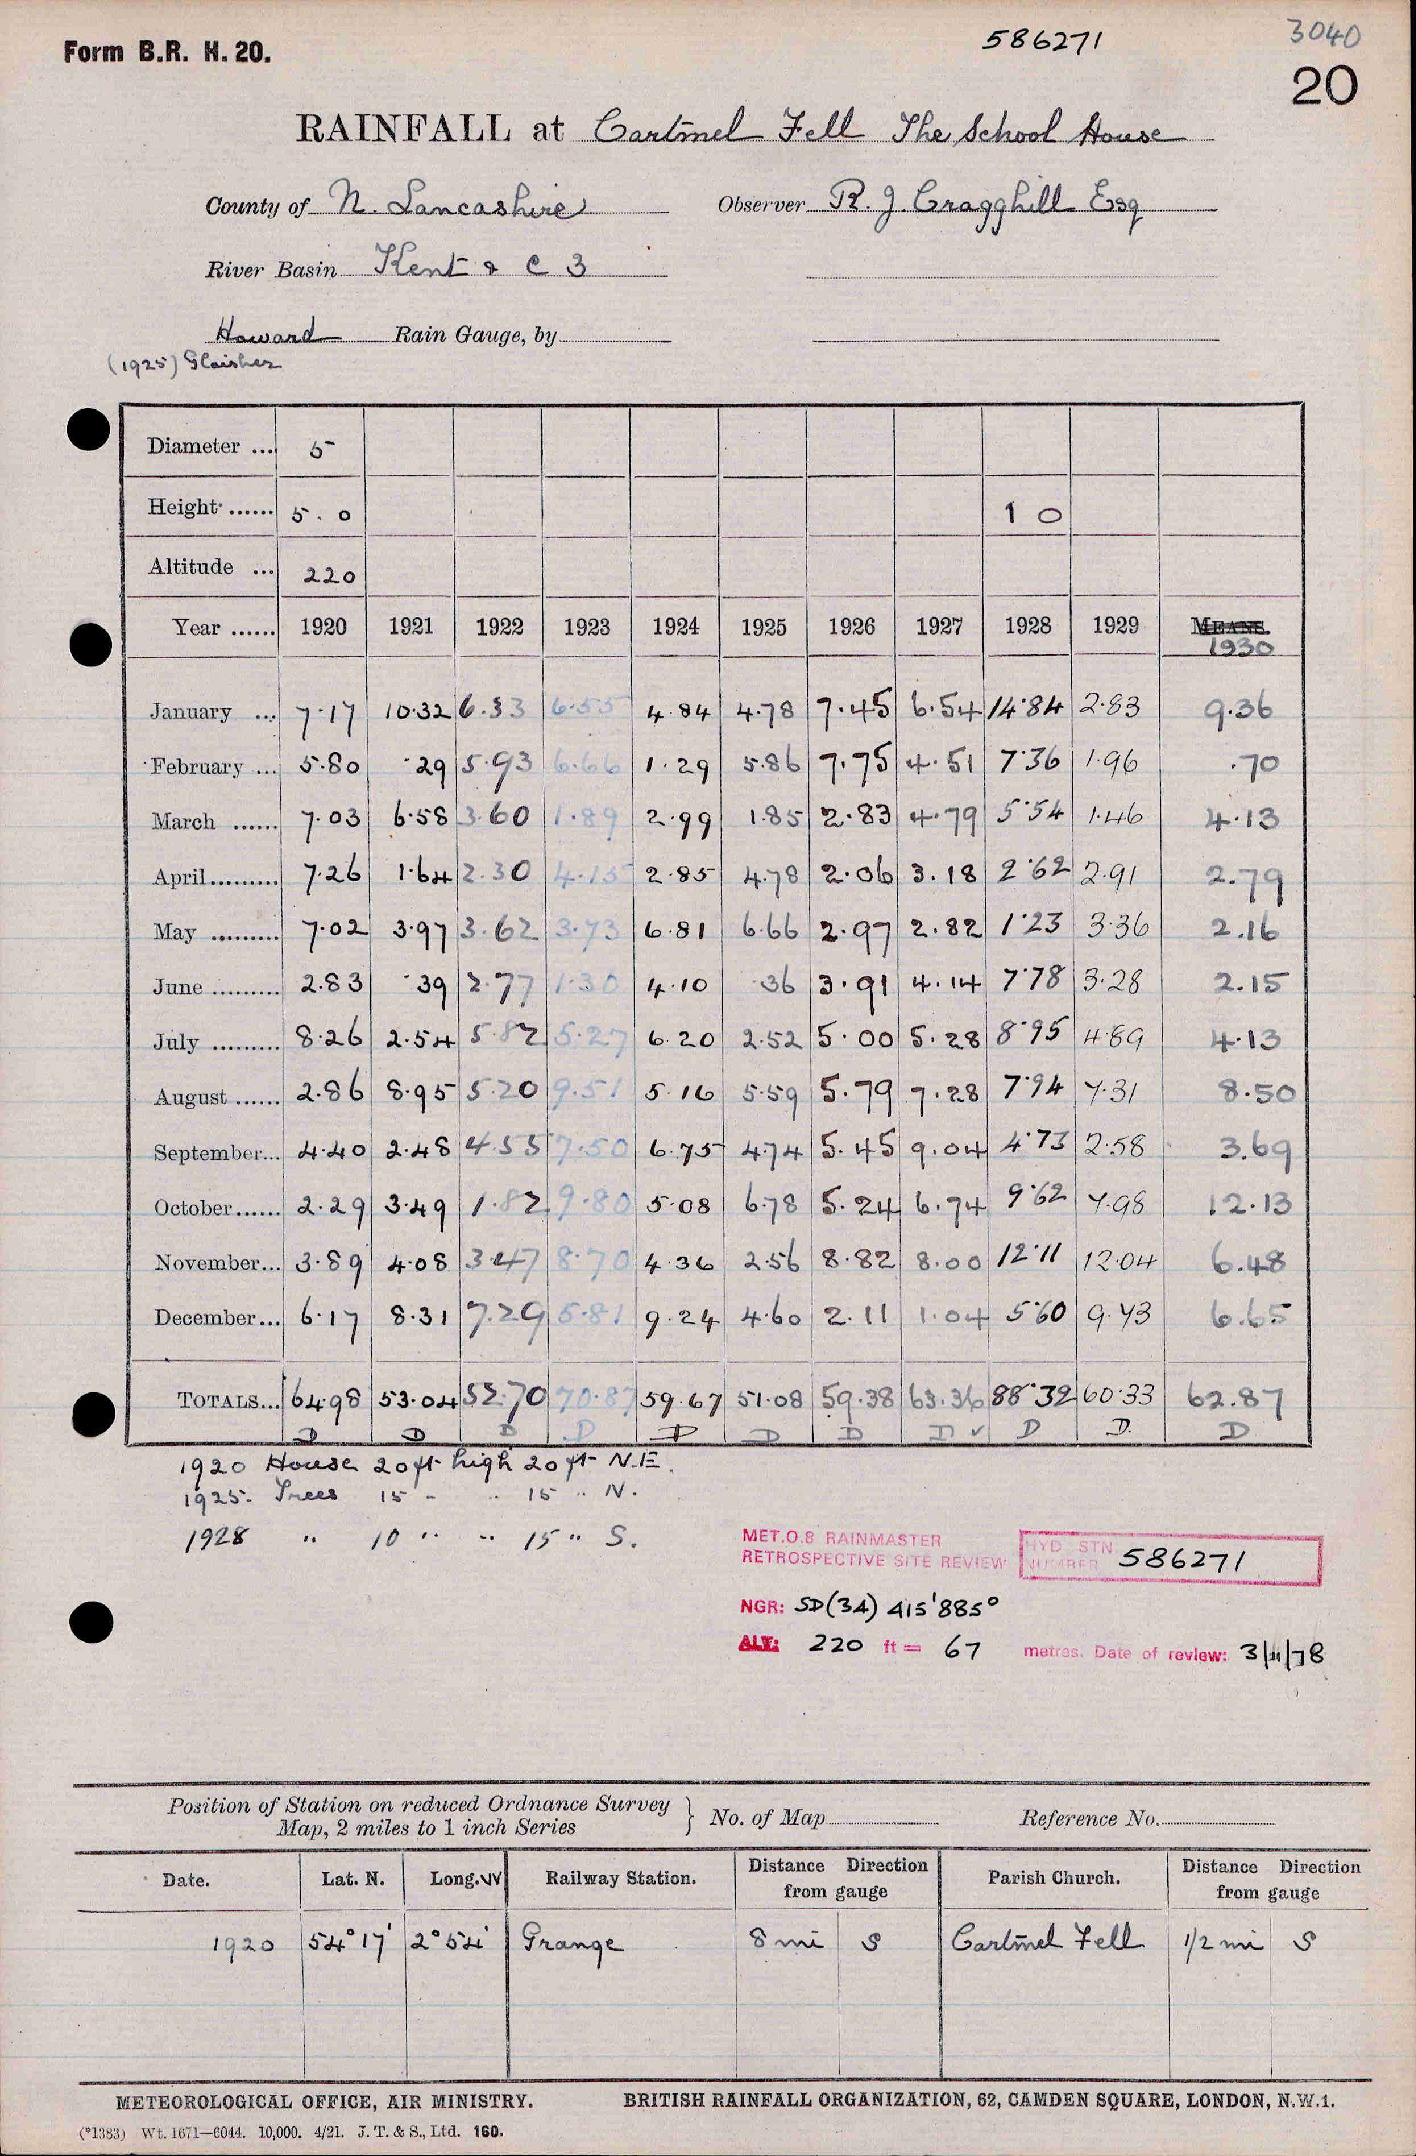 Form B.R. H. 20.
586271
3040
20
RAINFALL at Cartmel Fell The School House
County of N. Lancashire Observer R. J. Cragghill Esq
River Basin Kent & C 3
Howard Rain Gauge, by
(1925) Glaisher
Diameter ... 5
Height ...... 5.0 1 0
Altitude ... 220
Year ...... 1920 1921 1922 1923 1924 1925 1926 1927 1928 1929 MEANS.
1930
January ... 7.17 10.32 6.33 6.55 4.84 4.78 7.45 6.54 14.84 2.83 9.36
February ... 5.80 .29 5.93 6.66 1.29 5.86 7.75 4.51 7.36 1.96 .70
March ...... 7.03 6.58 3.60 1.89 2.99 1.85 2.83 4.79 5.54 1.46 4.13
April......... 7.26 1.64 2.30 4.15 2.85 4.78 2.06 3.18 2.62 2.91 2.79
May ......... 7.02 3.97 3.62 3.73 6.81 6.66 2.97 2.82 1.23 3.36 2.16
June ......... 2.83 .39 2.77 1.30 4.10 .36 3.91 4.14 7.78 3.28 2.15
July ......... 8.26 2.54 5.82 5.27 6.20 2.52 5.00 5.28 8.95 4.89 4.13
August ...... 2.86 8.95 5.20 9.51 5.16 5.59 5.79 7.28 7.94 7.31 8.50
September... 4.40 2.48 4.55 7.50 6.75 4.74 5.45 9.04 4.73 2.58 3.69
October...... 2.29 3.49 1.82 9.80 5.08 6.78 5.24 6.74 9.62 7.98 12.13
November... 3.89 4.08 3.47 8.70 4.36 2.56 8.82 8.00 12.11 12.04 6.48
December... 6.17 8.31 7.29 5.81 9.24 4.60 2.11 1.04 5.60 9.73 6.65
TOTALS... 64.98 53.04 52.70 70.87 59.67 51.08 59.38 63.36 88.32 60.33 62.87
D D D D D D D D ✓ D D. D
1920 House 20 ft high 20 ft N.E.
1925. Trees 15 " " 15 " N.
1928 " 10 " " 15 " S.
MET.O.8 RAINMASTER
RETROSPECTIVE SITE REVIEW
HYD STN
NUMBER 586271
NGR: SD(34) 415'885°
ALT: 220 ft = 67 metres. Date of review: 3/11/78
Position of Station on reduced Ordnance Survey
Map, 2 miles to 1 inch Series } No. of Map Reference No.
Date. Lat. N. Long. W Railway Station. Distance Direction from gauge Parish Church. Distance Direction from gauge
1920 54° 17' 2° 54' Grange 8 mi S Cartmel Fell 1/2 mi S
METEOROLOGICAL OFFICE, AIR MINISTRY. BRITISH RAINFALL ORGANIZATION, 62, CAMDEN SQUARE, LONDON, N.W.1.
(*1383) Wt. 1671—6044. 10,000. 4/21. J. T. & S., Ltd. 160.